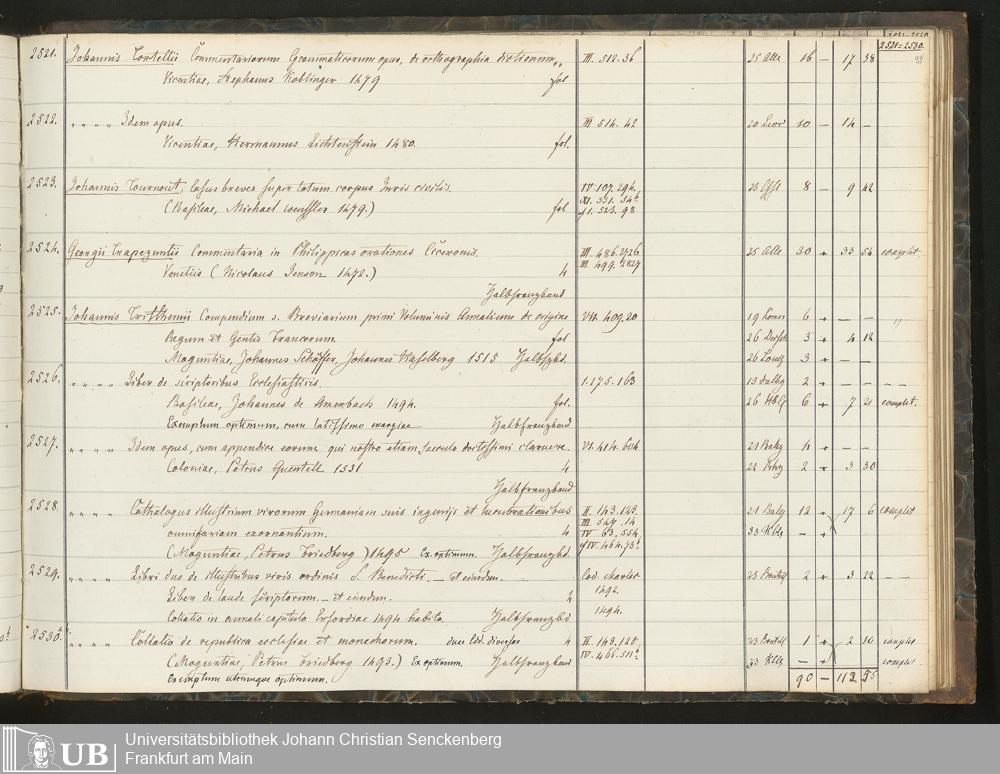 2520=2530.
2521. Johannis Tortellii Commentariorum Grammaticorum opus, de orthographia dictionum III. 512. 36 25 Alle 16 – 17 38
Vicentiae, Stephanus Koblinger 1479 fol
2522. " " " " Idem opus. III 514. 42 20 10 – 14 –
Vicentiae, Hermannus Lichtenstein 1480. fol.
2523. Johannis Tournout, Casus breves super totum corpus Juris civilis. IV. 107. 294. 8 – 9 42
(Basileae, Michael Wenssler 1479.) fol XI. 331.
523. 98
2524. Georgii Trapezuntii Commentaria in Philippicas orationes Ciceronis. III. 486. 2726 25 Alle 30 + 33 54 complet
Venetiis (Nicolaus Jenson 1472.) 4 III. 499. 2827
Halbfranzband
2525. Johannis Tritthemii Compendium s. Breviarium primi Voluminis Annalium de origine VII. 409. 20 19 6 + – –
Regum et Gentis Francorum. fol 26 3 + 4 12
Moguntiae, Johannes Schöffer, Johannes Haselberg 1515 Halbfzbd. 26 3 + –
2526. " " " " Liber de scriptoribus Ecclesiasticis. I. 175. 163 13 Dalbg 2 + – – – –
Basileae, Johannes de Amerbach 1494. fol. 26 6 + 7 complet.
Exemplum optimum, cum latissimo margine Halbfranzband
2527. " " " " Idem opus, cum appendice eorum qui nostro etiam seculo doctissimi claruere. VI. 414. 604 21 4 + –
Coloniae, Petrus Quentell 1531 4 22 2 + 3 30
Halbfranzband
2528. " " " " Cathalogus illustrium virorum Germaniam suis ingeniis et lucubrationibus II. 143. 123. 21 12 + 17 6 complet
omnifariam exornantium. 4 III. 547. 14 33 Klß – +
IV 63. 554
(Moguntiae, Petrus Friedberg) 1495 Ex. optimum. Halbfranzbd IV. 464. 73
2529. " " " " Libri duo de illustribus viris ordinis S. Benedicti. – et eiusdem. Cod. chartac 23 2 + 3 22 – –
Liber de laude scriptorum. – et eiusdem. 4 1492.
Collatio in annali capitulo Erfordiae 1494 habita. Halbfranzbd 1494.
2530. " " " " Collatio de republica ecclesiae et monachorum. duae Edd. diversae 4 II. 143. 125. 23 1 + 2 complet
(Moguntiae, Petrus Friedberg 1493.) Ex optimum. Halbfranzband IV. 466. 33 Klß – + complet
Exemplum utrumque optimum. 90 – 112 55
UB
Universitätsbibliothek Johann Christian Senckenberg
Frankfurt am Main